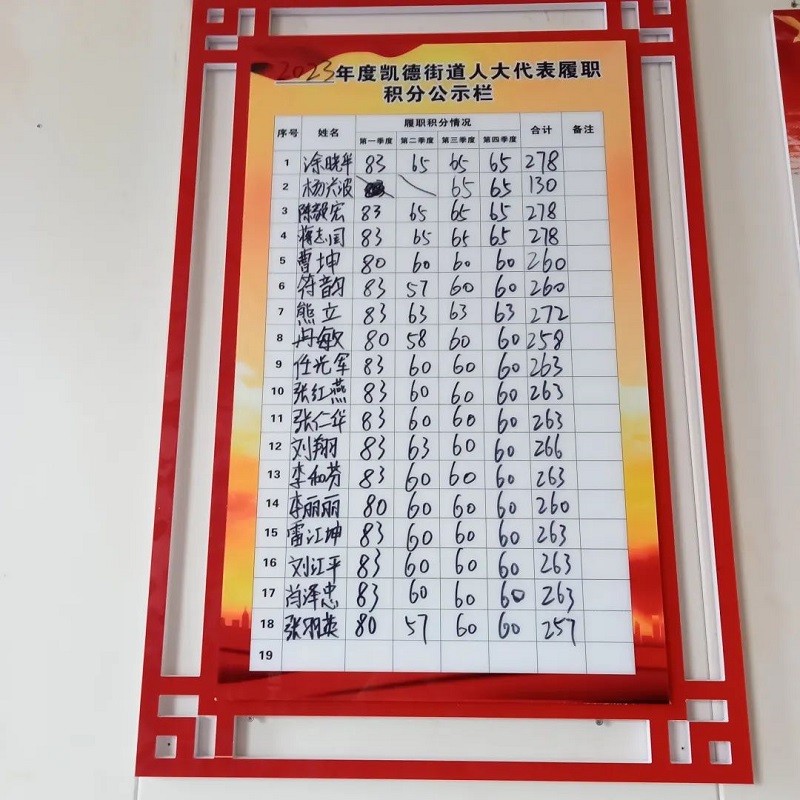 2023年度凯德街道人大代表履职
积分公示栏
序号 姓名 履职积分情况 合计 备注
第一季度 第二季度 第三季度 第四季度
1 涂晓华 83 65 65 65 278
2 杨兴波 65 65 130
3 陈毅宏 83 65 65 65 278
4 蒋志国 83 65 65 65 278
5 曹坤 80 60 60 60 260
6 符韵 83 57 60 60 260
7 熊立 83 63 63 63 272
8 冉敏 80 58 60 60 258
9 任光军 83 60 60 60 263
10 张红燕 83 60 60 60 263
11 张仁华 83 60 60 60 263
12 刘翔 83 63 60 60 266
13 李和芬 83 60 60 60 263
14 李丽丽 80 60 60 60 260
15 雷江坤 83 60 60 60 263
16 刘江平 83 60 60 60 263
17 肖泽忠 83 60 60 60 263
18 张羽英 80 57 60 60 257
19